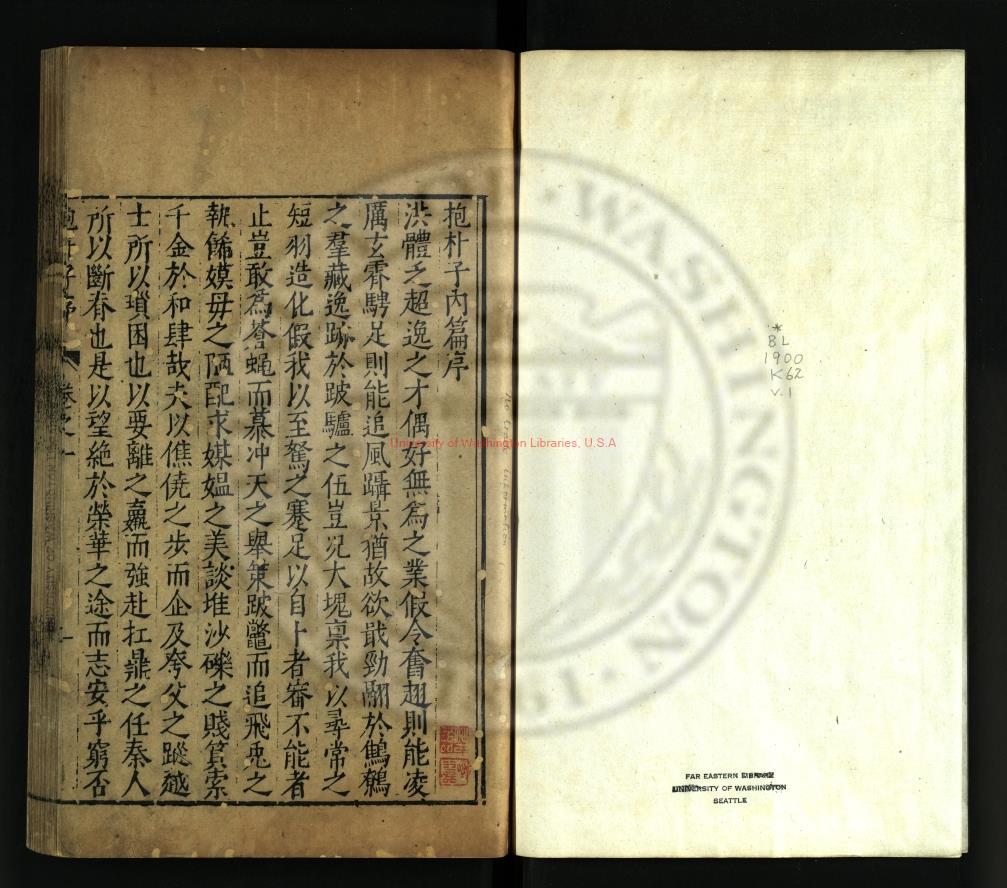 抱朴子內篇序
洪體乏超逸之才偶好無爲之業假令奮翅則能凌
厲玄霄騁足則能追風躡景猶故欲戢勁翮於鷦鷯
之羣藏逸跡於跛驢之伍豈況大塊禀我以尋常之
短羽造化假我以至駑之蹇足以自卜者審不能者
止豈敢爲蒼蠅而慕冲天之舉策跛鼈而追飛兎之
軌飾嫫母之陋配求媒媪之美談堆沙礫之賤質索
千金於和肆哉夫以僬僥之步而企及夸父之蹤越
士所以瑣困也以要離之羸而強赴扛鼎之任秦人
所以斷脊也是以望絕於榮華之途而志安乎窮否
抱朴子序
卷之一
一
*
BL
1900
K62
v.1
University of Washington Libraries, U.S.A
WASHINGTON
FAR EASTERN LIBRARY
UNIVERSITY OF WASHINGTON
SEATTLE